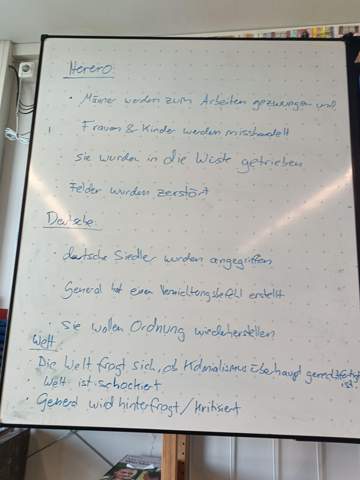 Herero
• Männer werden zum Arbeiten gezwungen und
Frauen & Kinder werden misshandelt
sie wurden in die Wüste getrieben
• Felder wurden zerstört
Deutsche
• deutsche Siedler wurden angegriffen
General hat einen Vernichtungsbefehl erstellt
• sie wollen Ordnung wiederherstellen
Welt
• Die Welt fragt sich, ob Kolonialismus überhaupt gerechtfertigt ist.
• Welt ist schockiert
• General wird hinterfragt/kritisiert